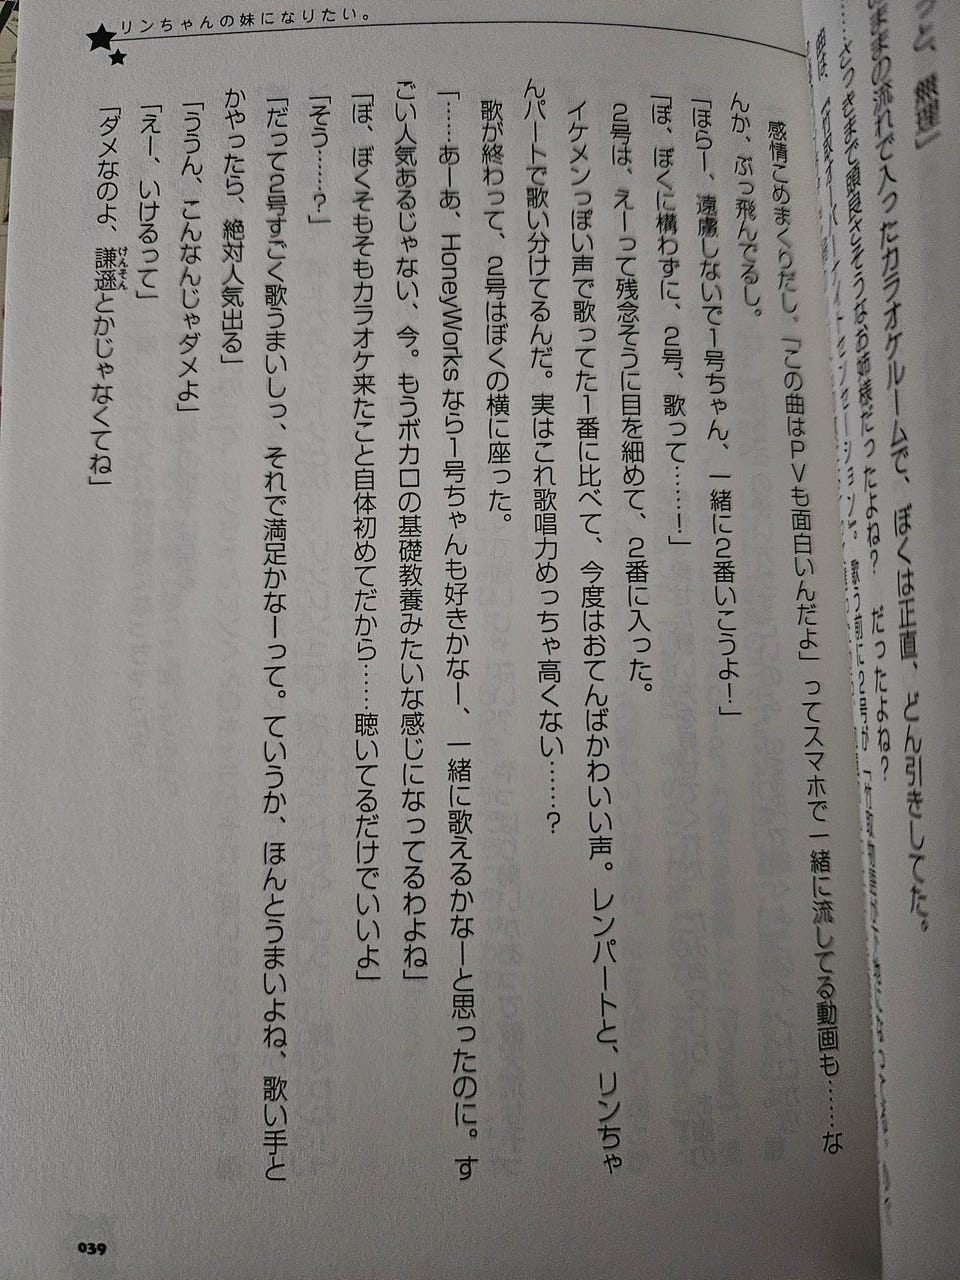 リンちゃんの妹になりたい。
ままの流れで入ったカラオケルームで、ぼくは正直、どん引きしてた。
……さっきまで頭良さそうなお姉様だったよね？　だったよね？
感情こめまくりだし。「この曲はＰＶも面白いんだよ」ってスマホで一緒に流してる動画も……な
んか、ぶっ飛んでるし。
「ほらー、遠慮しないで１号ちゃん、一緒に２番いこうよー！」
「ぼ、ぼくに構わずに、２号、歌って……！」
２号は、えーって残念そうに目を細めて、２番に入った。
イケメンっぽい声で歌ってた１番に比べて、今度はおてんばかわいい声。レンパートと、リンちゃ
んパートで歌い分けてるんだ。実はこれ歌唱力めっちゃ高くない……？
歌が終わって、２号はぼくの横に座った。
「……あーあ、HoneyWorksなら１号ちゃんも好きかなー、一緒に歌えるかなーと思ったのに。す
ごい人気あるじゃない、今。もうボカロの基礎教養みたいな感じになってるわよね」
「ぼ、ぼくそもそもカラオケ来たこと自体初めてだから……聴いてるだけでいいよ」
「そう……？」
「だって２号すごく歌うまいしっ、それで満足かなーって。ていうか、ほんとうまいよね、歌い手と
かやったら、絶対人気出る」
「ううん、こんなんじゃダメよ」
「えー、いけるって」
「ダメなのよ、謙遜とかじゃなくてね」
けんそん
039